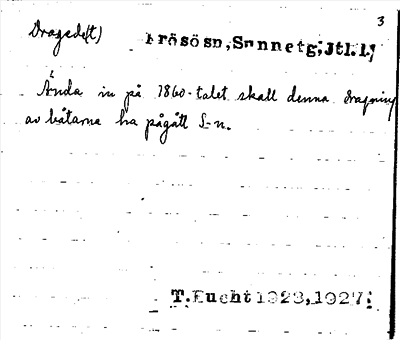 3
Drage(t)
Frösösn, Sunnetg; Jtl. l;
Ända in på 1860-talet skall denna dragning
av båtarna ha pågått S-n.
T. Lucht 1923, 1927;